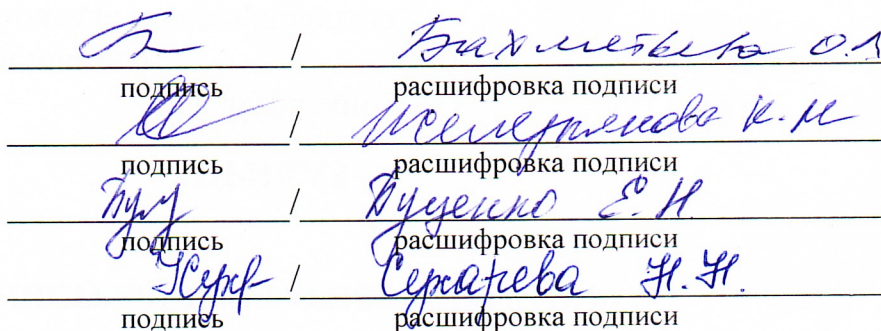 / Бахметьева О.В
подпись расшифровка подписи
/ К.М
подпись расшифровка подписи
/ Буценко Е.Н.
подпись расшифровка подписи
/ Сухарева Н.Н.
подпись расшифровка подписи